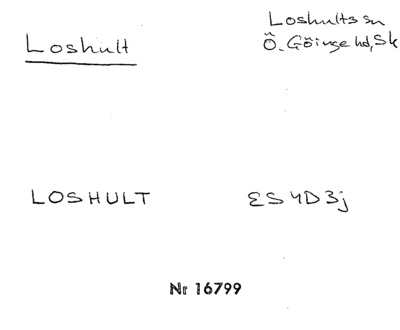 Loshult
Loshults sn
Ö. Göinge hd, Sk
LOSHULT
ES4D3j
Nr 16799